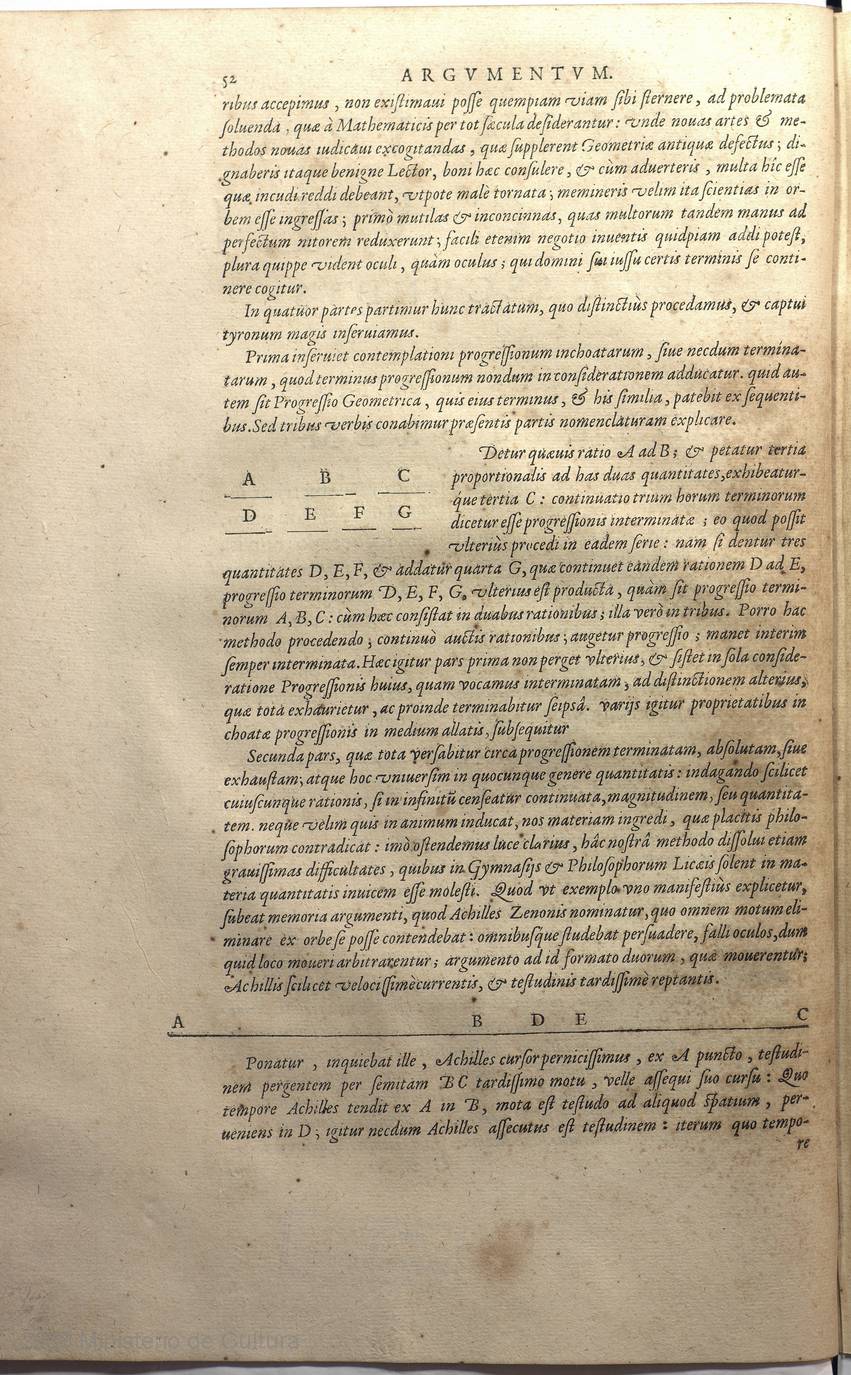 52 ARGVMENTVM.
ribus accepimus, non existimaui posse quempiam viam sibi sternere, ad problemata
soluenda, quæ à Mathematicis per tot sæcula desiderantur: vnde nouas artes & me-
thodos nouas iudicaui excogitandas, quæ supplerent Geometriæ antiquæ defectus; di-
gnaberis itaque benigne Lector, boni hæc consulere, & cùm aduerteris, multa hîc esse
quæ incudi reddi debeant, vtpote malè tornata; memineris velim ita scientias in or-
bem esse ingressas; primò mutilas & inconcinnas, quas multorum tandem manus ad
perfectum nitorem reduxerunt; facili etenim negotio inuentis quidpiam addi potest,
plura quippe vident oculi, quàm oculus; qui domini sui iussu certis terminis se conti-
nere cogitur.
In quatuor partes partimur hunc tractatum, quo distinctiùs procedamus, & captui
tyronum magis inseruiamus.
Prima inseruiet contemplationi progressionum inchoatarum, siue necdum termina-
tarum, quod terminus progressionum nondum in considerationem adducatur. quid au-
tem sit Progressio Geometrica, quis eius terminus, & his similia, patebit ex sequenti-
bus. Sed tribus verbis conabimur præsentis partis nomenclaturam explicare.
Detur quæuis ratio A ad B; & petatur tertia
A B C
proportionalis ad has duas quantitates, exhibeatur-
que tertia C: continuatio trium horum terminorum
D E F G
dicetur esse progressionis interminatæ; eo quod possit
vlteriùs procedi in eadem serie: nam si dentur tres
quantitates D, E, F, & addatur quarta G, quæ continuet eandem rationem D ad E,
progressio terminorum D, E, F, G, vlterius est producta, quàm sit progressio termi-
norum A, B, C: cùm hæc consistat in duabus rationibus; illa verò in tribus. Porro hac
methodo procedendo; continuò auctis rationibus; augetur progressio; manet interim
semper interminata. Hæc igitur pars prima non perget vlterius, & sistet in sola conside-
ratione Progressionis huius, quam vocamus interminatam, ad distinctionem alterius,
quæ tota exhaurietur, ac proinde terminabitur seipsâ. varijs igitur proprietatibus in
choatæ progressionis in medium allatis, subsequitur
Secunda pars, quæ tota versabitur circa progressionem terminatam, absolutam, siue
exhaustam; atque hoc vniuersim in quocunque genere quantitatis: indagando scilicet
cuiuscunque rationis, si in infinitũ censeatur continuata, magnitudinem, seu quantita-
tem. neque velim quis in animum inducat, nos materiam ingredi, quæ placitis philo-
sophorum contradicat: imò ostendemus luce clarius, hâc nostrâ methodo dissolui etiam
grauissimas difficultates, quibus in Gymnasijs & Philosophorum Licæis solent in ma-
teria quantitatis inuicem esse molesti. Quod vt exemplo vno manifestiùs explicetur,
subeat memoria argumenti, quod Achilles Zenonis nominatur, quo omnem motum eli-
minare ex orbe se posse contendebat: omnibusque studebat persuadere, falli oculos, dum
quid loco moueri arbitrarentur; argumento ad id formato duorum, quæ mouerentur;
Achillis scilicet velocissimè currentis, & testudinis tardissimè reptantis.
A B D E C
Ponatur, inquiebat ille, Achilles cursor pernicissimus, ex A puncto, testudi-
nem pergentem per semitam BC tardissimo motu, velle assequi suo cursu: Quo
tempore Achilles tendit ex A in B, mota est testudo ad aliquod spatium, per-
ueniens in D; igitur necdum Achilles assecutus est testudinem: iterum quo tempo-
re
Ministerio de Cultura